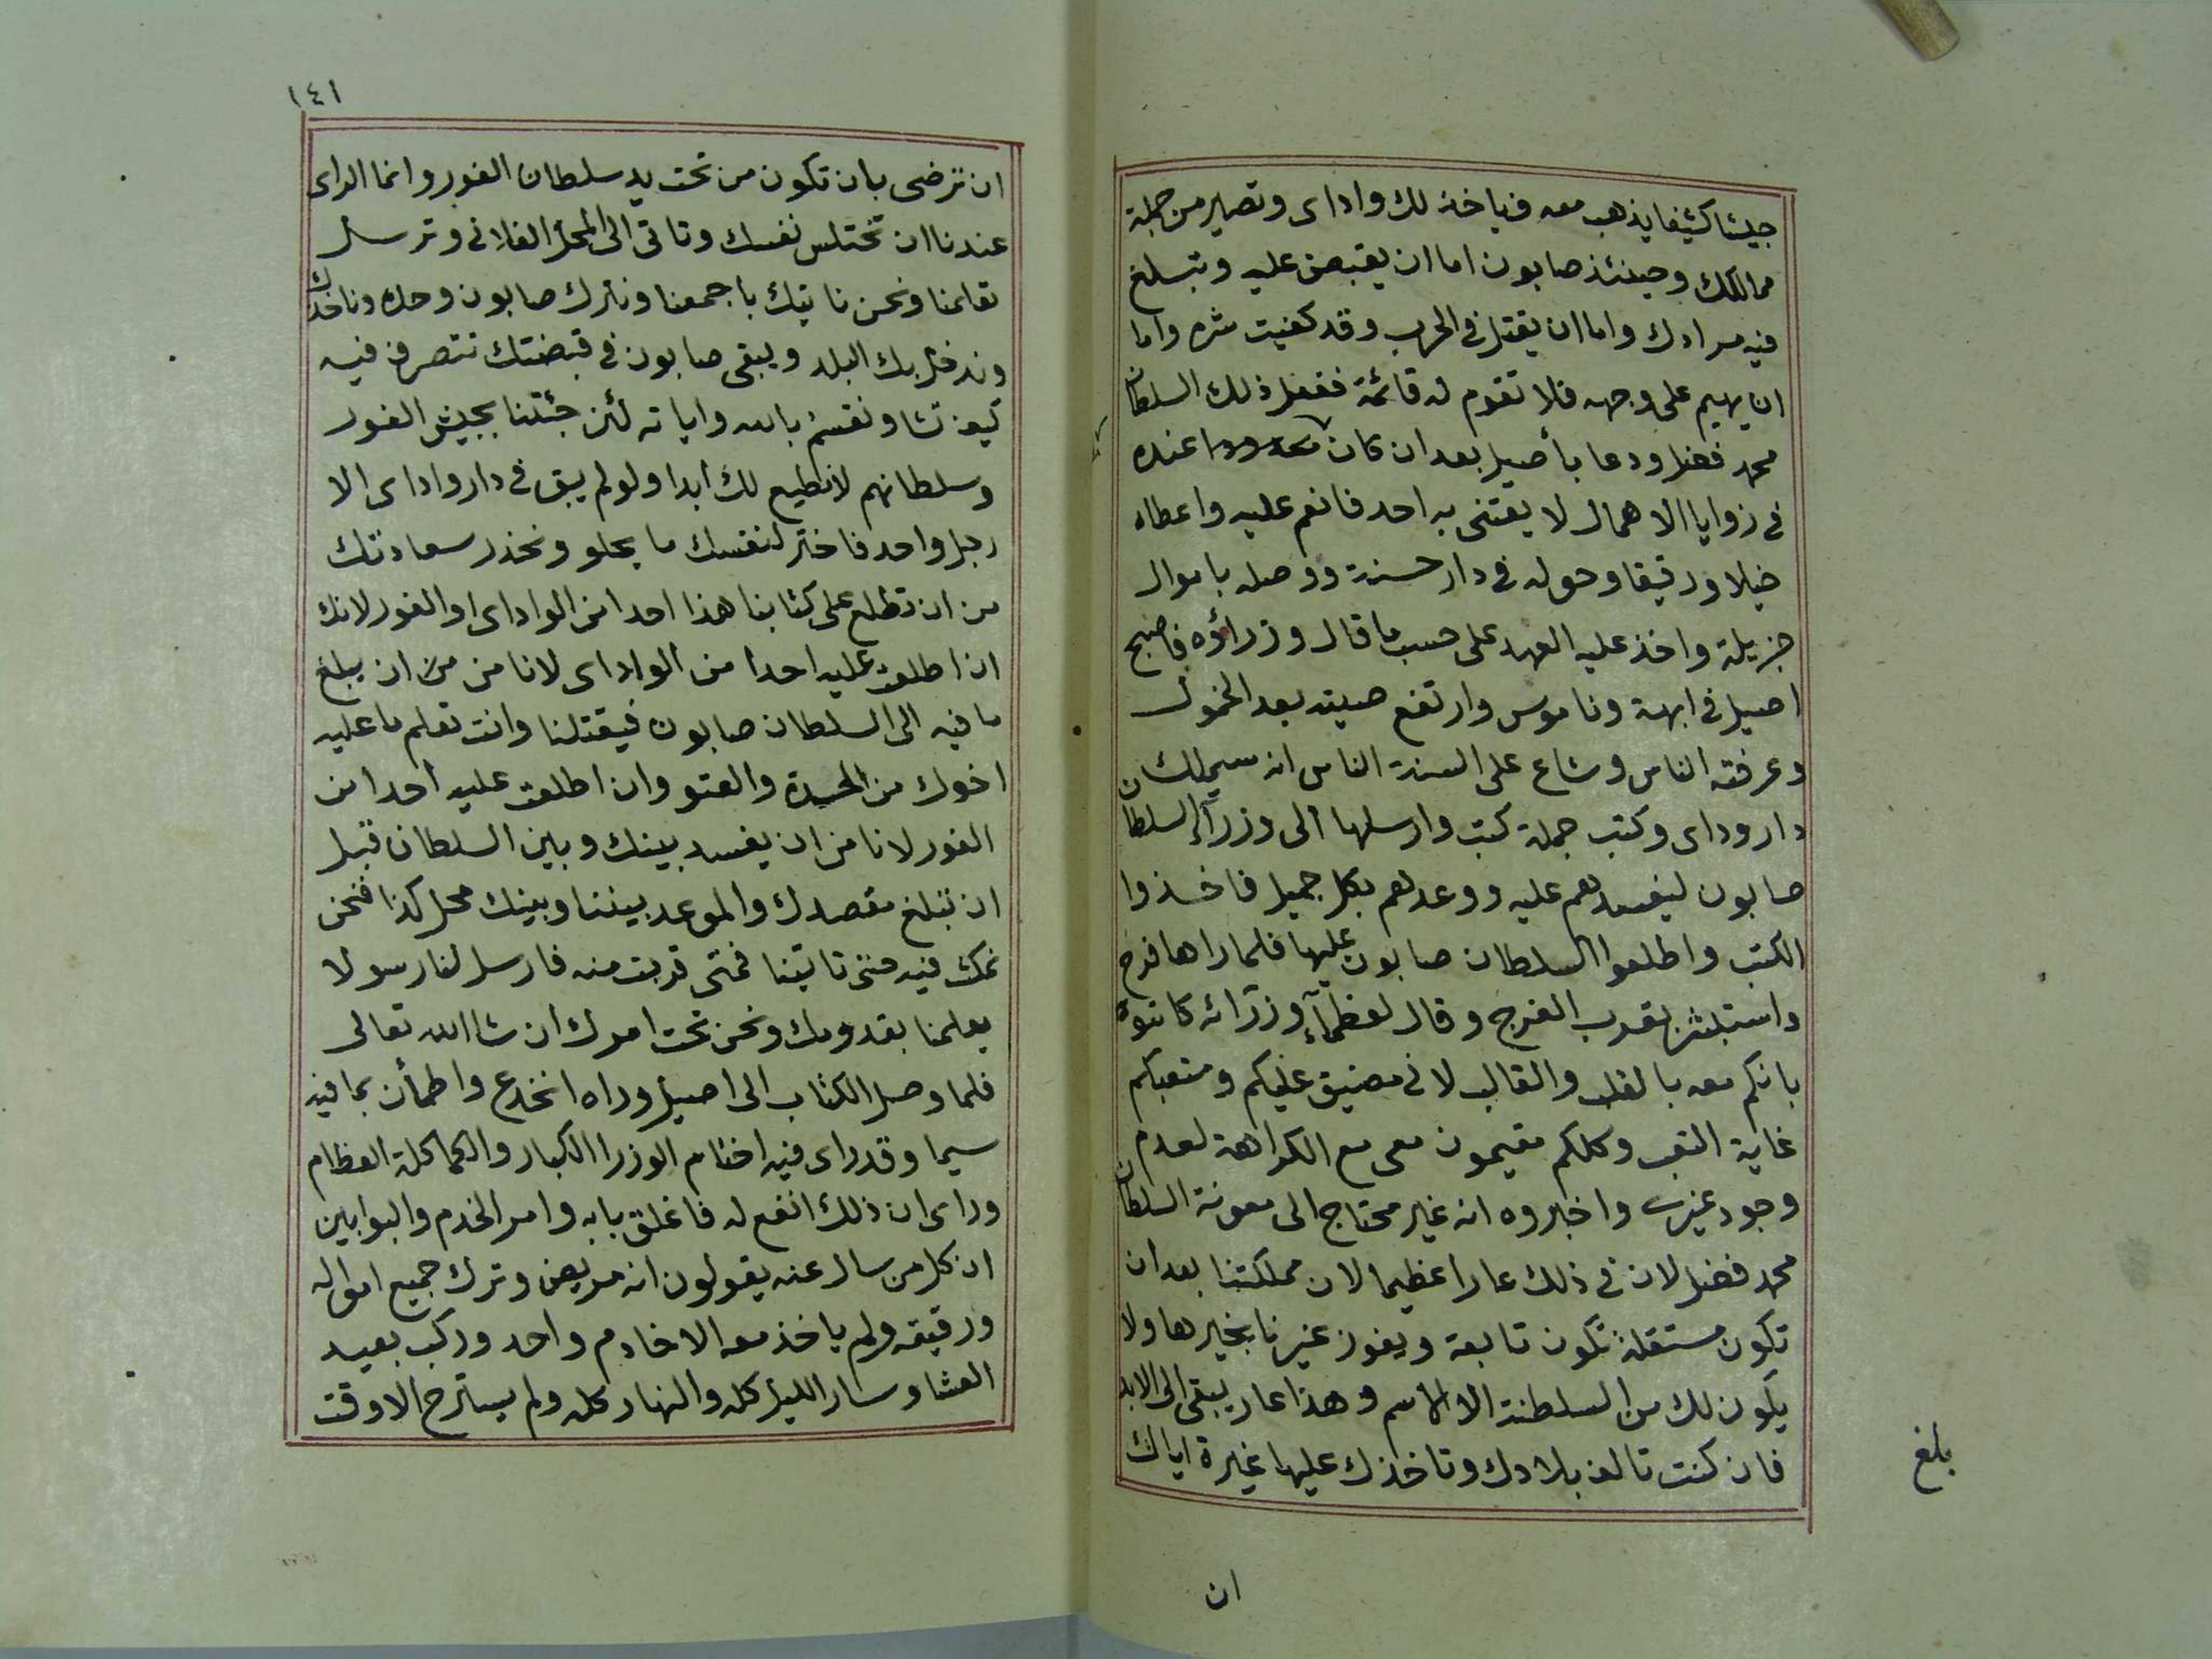 جيشا كثيفا يذهب معه فياخذ لك واداى وتصير من جملة
ممالكك وحينئذ صابون اما ان يقبض عليه وتبلغ
فيه مرادك واما ان يقتل فى الحرب وقد كفيت شره واما
ان يهيم على وجهه فلا تقوم له قائمة ففعل ذلك السلطان
محمد فضل ودعا بأصيل بعد ان كان عنده
فى زوايا الاهمال لا يعتنى به احد فانعم عليه واعطاه
خيلا ورقيقا وحوله فى دار حسنة ووصله باموال
جزيلة واخذ عليه العهد على حسب ما قال وزراؤه فاصبح
اصيل فى ابهة وناموس وارتفع صيته بعد الخمول
وعرفته الناس وشاع على السنة الناس انه سيملك
دار وداى وكتب جملة كتب وارسلها الى وزرآء السلطان
صابون ليفسدهم عليه ووعدهم بكل جميل فاخذوا
الكتب واطلعوا السلطان صابون عليها فلما راها فرح
واستبشر بقرب الفرج وقال لعظمآء وزرآئه كاتبوه
بانكم معه بالقلب والقالب لانى مضيق عليكم ومتعبكم
غاية التعب وكلكم مقيمون معى مع الكراهة لعدم
وجود غيرى واخبروه انه غير محتاج الى معونة السلطان
محمد فضل لان فى ذلك عارا عظيما لان مملكتنا بعد ان
تكون مستقلة تكون تابعة ويفوز غيرنا بخيرها ولا
يكون لك من السلطنة الا الاسم وهذا عار يبقى الى الابد
فان كنت تالف بلادك وتاخذك عليها غيرة اياك
بلغ
ان
١٤١
ان ترضى بان تكون من تحت يد سلطان الفور وانما الراى
عندنا ان تختلس نفسك وتاتى الى المحل الفلانى وترسل
تعلمنا ونحن ناتيك باجمعنا ونترك صابون وحده وناخذك
وندخل بك البلد ويبقى صابون فى قبضتك تتصرف فيه
كيف تشا ونقسم بالله واياته لئن جئتنا بجيش الفور
وسلطانهم لا نطيع لك ابدا ولو لم يبق فى دار واداى الا
رجل واحد فاختر لنفسك ما يحلو ونحذر سعادتك
من ان تطلع على كتابنا هذا احدا من الواداى او الفور لانك
ان اطلعت عليه احدا من الواداى لا نامن من ان يبلغ
ما فيه الى السلطان صابون فيقتلنا وانت تعلم ما عليه
اخوك من الحدة والعتو وان اطلعت عليه احدا من
الفور لا نامن ان يفسد بينك وبين السلطان قبل
ان تبلغ مقصدك والموعد بيننا وبينك محل كذا فنحن
نمكث فيه حتى تاتينا فمتى قربت منه فارسل لنا رسولا
يعلمنا بقدومك ونحن تحت امرك ان شا الله تعالى
فلما وصل الكتاب الى اصيل وراه انخدع واطمأن بما فيه
سيما وقد راى فيه اختام الوزرا الكبار والكماكلة العظام
وراى ان ذلك انفع له فاغلق بابه وامر الخدم والبوابين
ان كل من سال عنه يقولون انه مريض وترك جميع امواله
ورقيقه ولم ياخذ معه الا خادم واحد وركب بعيد
العشا وسار الليل كله والنهار كله ولم يسترح الا وقت